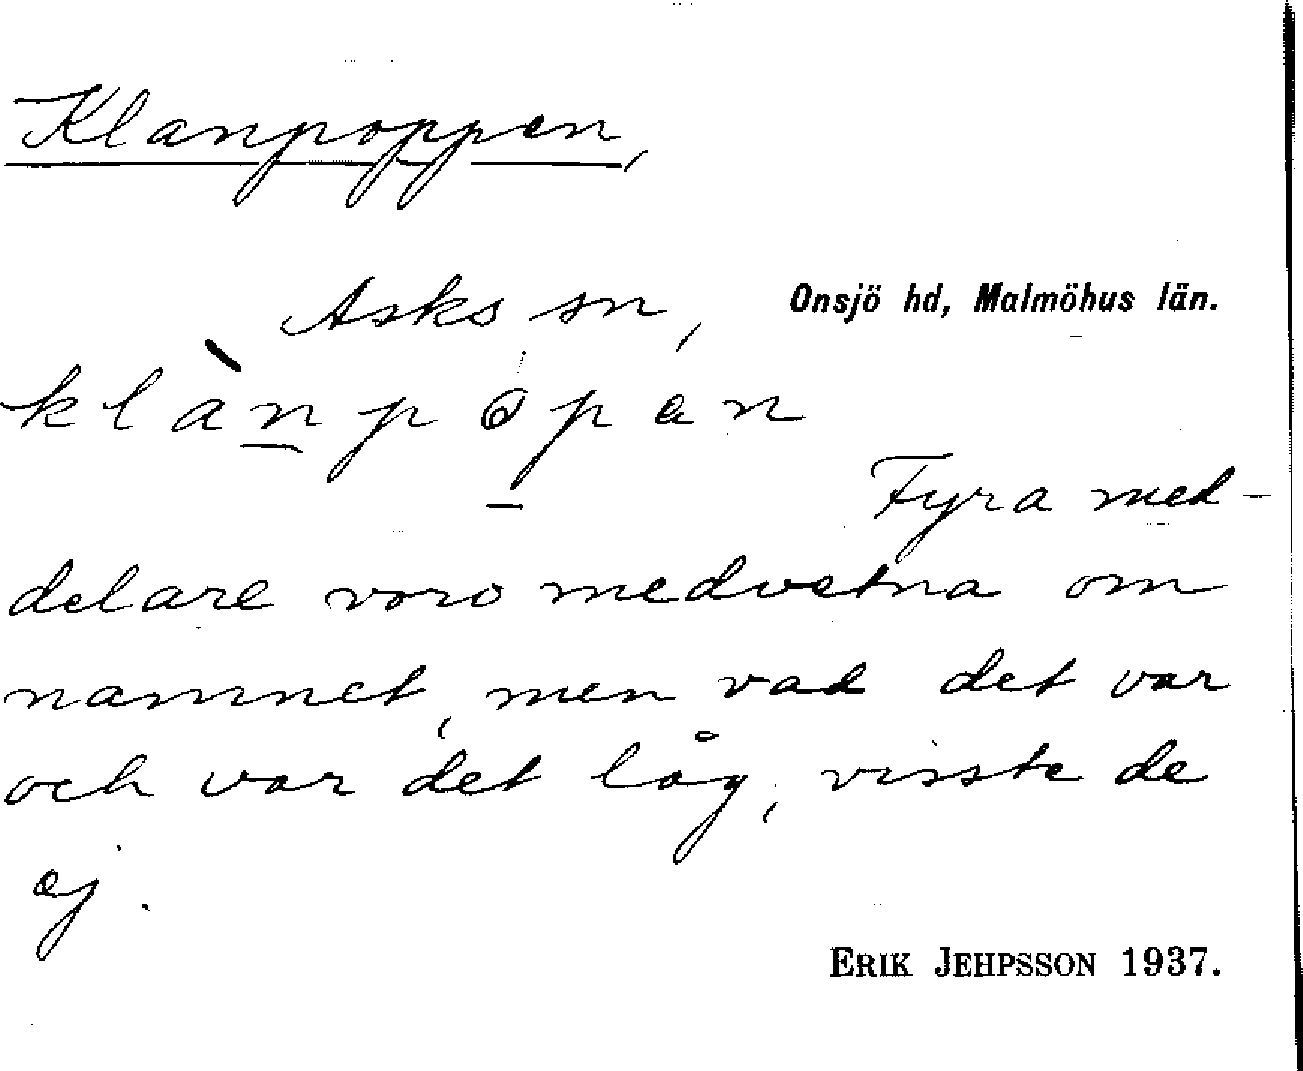 Klanpoppen,
Asks sn, Onsjö hd, Malmöhus län.
klànpopen
Fyra med-
delare voro medvetna om
namnet, men vad det var
och var det låg, visste de
ej.
ERIK JEHPSSON 1937.